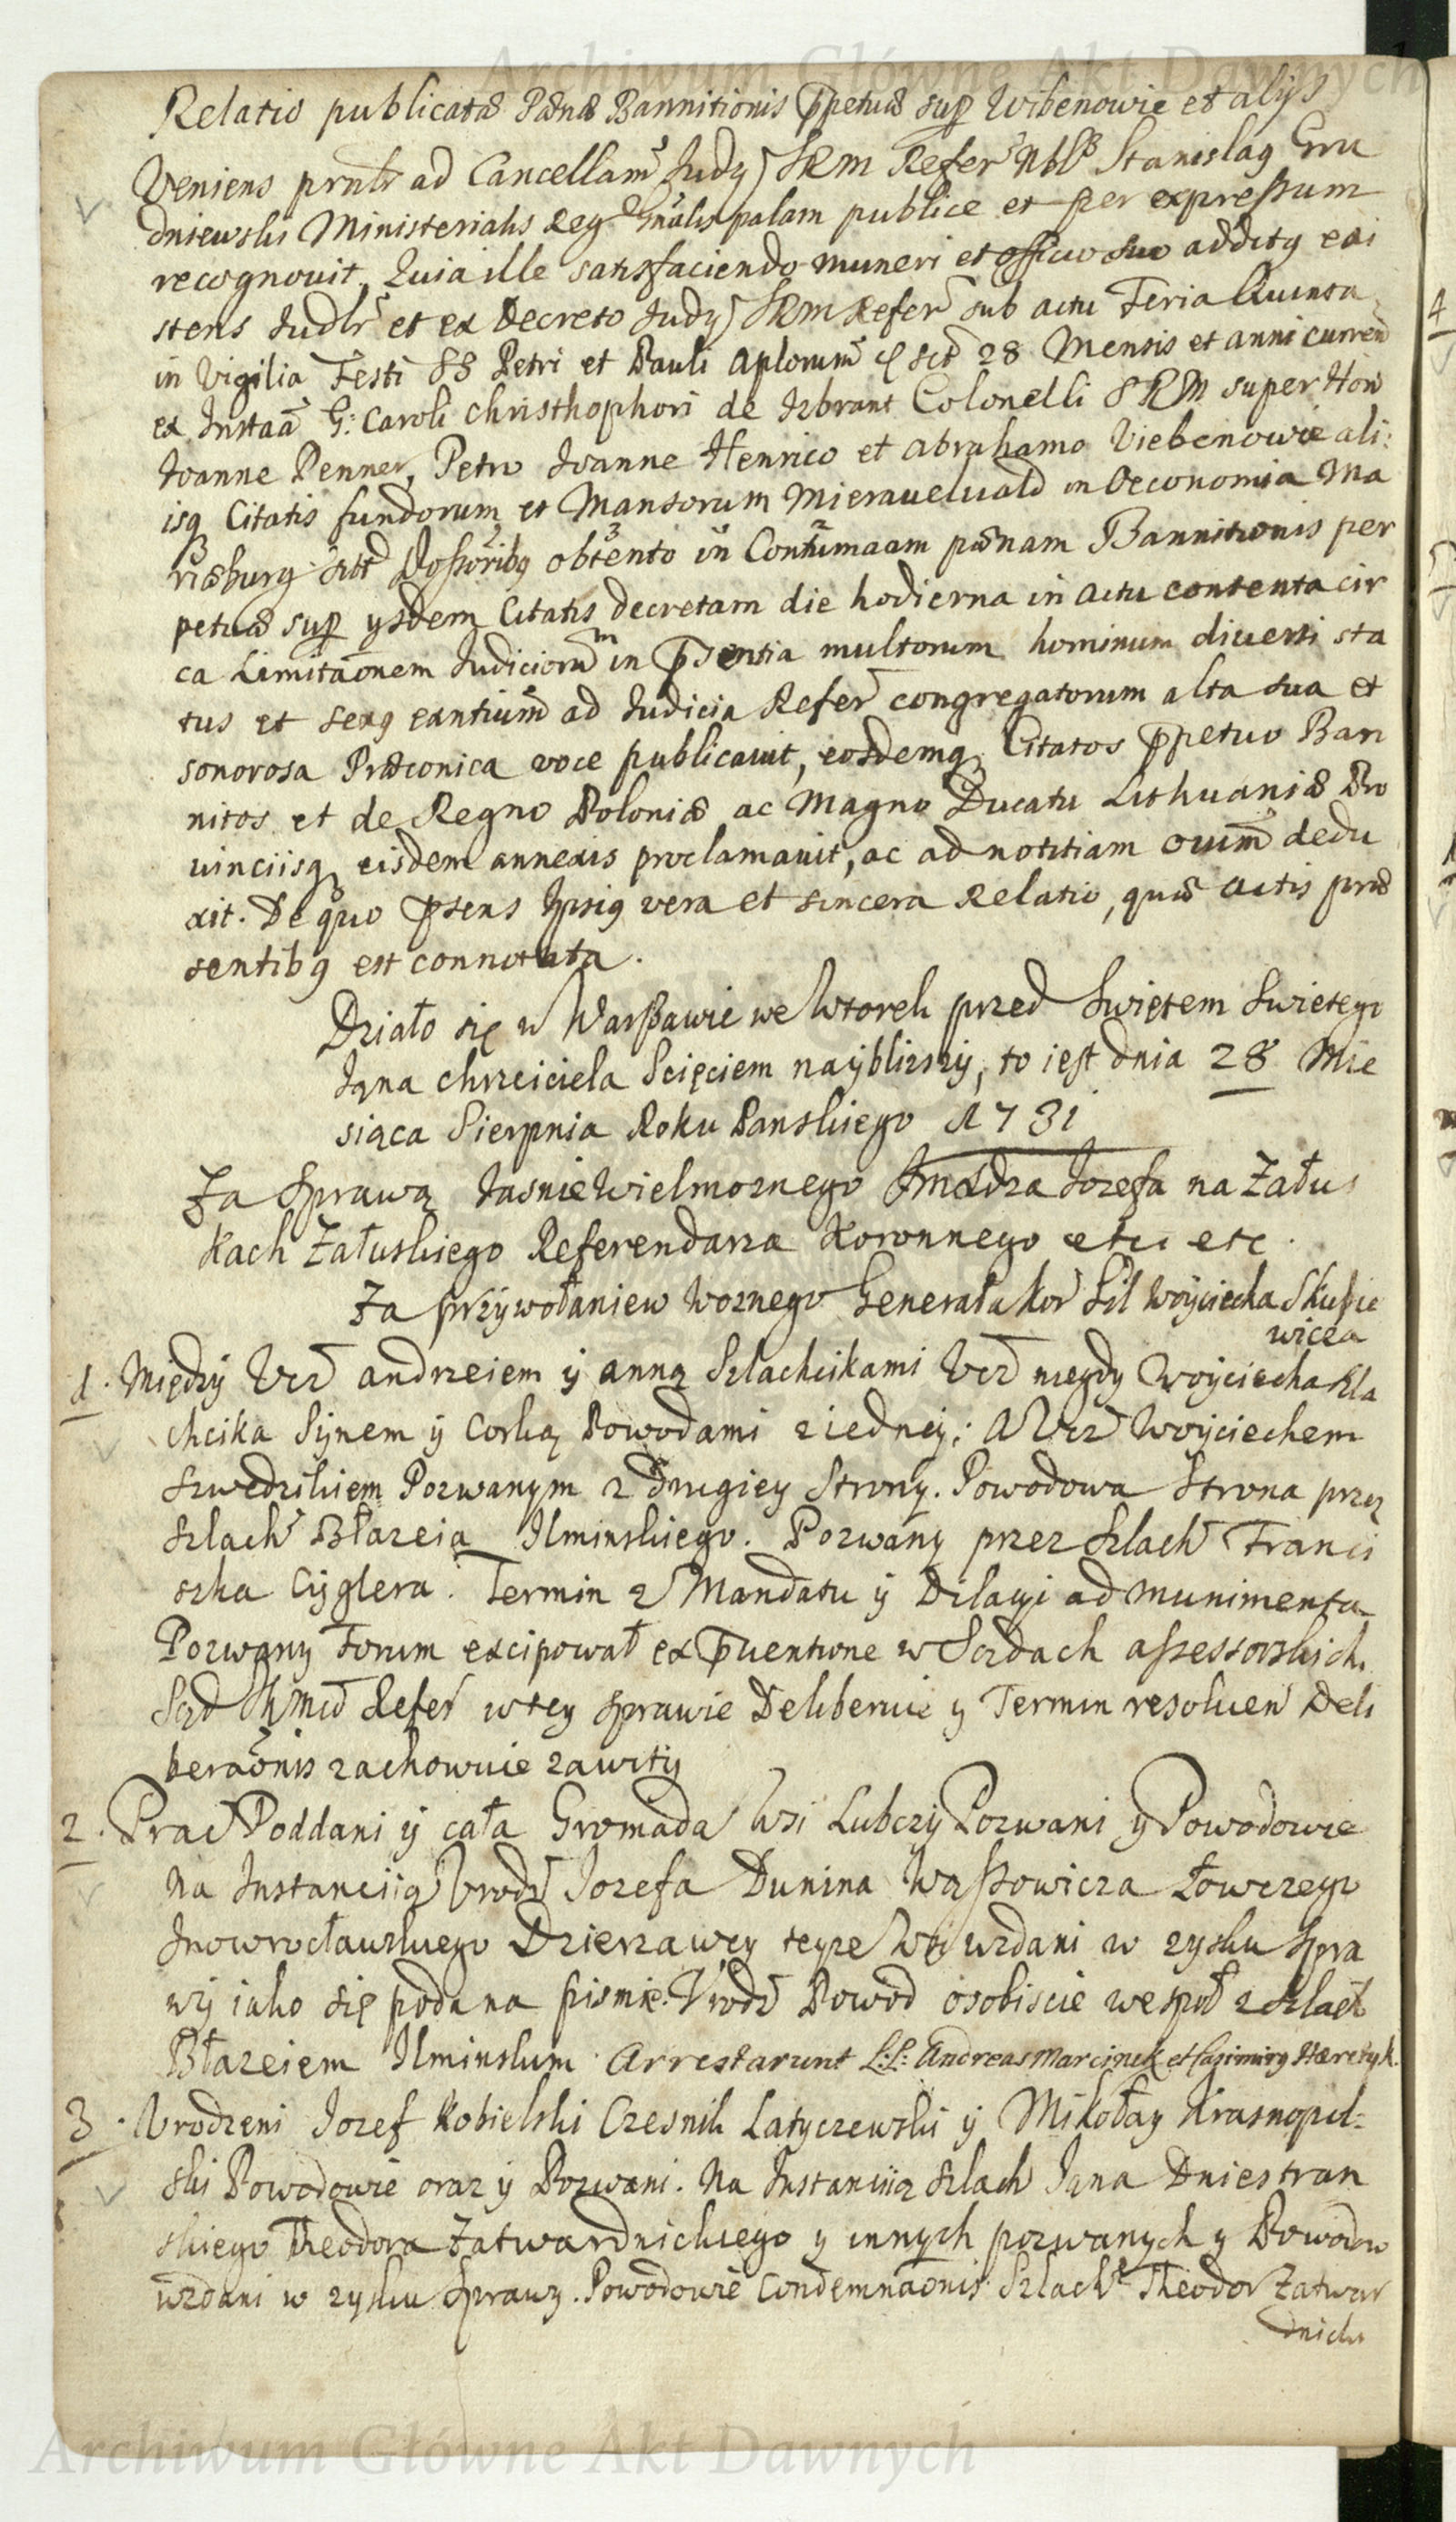 Archiwum Główne Akt Dawnych
Relatio publicatæ Pænæ Bannitionis ppetuæ sup Wibenowie et alijs
Veniens prntr ad Cancellam Judy SRM Refer Nbls Stanislaq Gru
dniewski Ministerialis Reg Gnalis palam publice et per expressum
recognovit, Quia ille satisfaciendo muneri et officio suo addity exi
stens Judlr et ex Decreto Judy SRM Refer sub actu Feria Quinta
in Vigilia Festi SS Petri et Pauli Aplorum e sct 28 Mensis et anni curren
ex Instaã G: Caroli Christhophori de Isbrant Colonelli SRM super Hon
Joanne Penner, Petro Joanne Henrico et Abrahamo Viebenowie ali:
isq Citatis fundorum et Mansorum Mieraueluald in Oeconomia Ma
riæburg sitt Possoribq obtento in Contumaam pænam Bannitionis per
petuæ sup ysdem Citatis decretam die hodierna in actu contenta cir
ca Limitaonem Judiciorum in Psentia multorum hominum diuersi sta
tus et sexq exntium ad Judicia Refer congregatorum alta sua et
sonorosa Præconica voce publicauit, eosdemq Citatos ppetuo Ban
nitos et de Regno Poloniæ ac Magno Ducatu Lithuaniæ Pro
uinciisq eisdem annexis proclamauit, ac ad notitiam ouim dedu
xit. De quo psens Ipsiq vera et sincera Relatio, quæ actis præ
sentibq est connotata.
Działo się w Warszawie we Wtorek przed Swiętem Swietego
Jana chrzciciela Scięciem nayblizszy, to iest dnia 28 Mie
siąca Sierpnia Roku Panskiego 1731
Za Sprawą JasnieWielmoznego Jmxdza Jozefa na Załus
kach Załuskiego Referendarza Koronnego etc etc.
Za przywołaniem Woznego Generała Kor Sil Woyciecha Skupie
wicza
1. Między Ucz andrzeiem y anną Szlachcikami Ucz niegdy Woyciecha Szla
chcika Synem y Corką Powodami z iedney; A Ucz Woyciechem
Szwedzikiem Pozwanym z drugiey Strony. Powodowa Strona przez
Szlach Błazeia Ilminskiego. Pozwany przez Szlach Franci
szka Cyglera. Termin z Mandatu y Dilacyi ad munimenta
Pozwany Forum excipował ex pventione w Sądach assessorskich.
Sąd JKmci Refer w tey sprawie Deliberuie y Termin resoluen Deli
beraonis zachowuie zawity
2. Prac Poddani y cała Gromada Wsi Lubczy Pozwani y Powodowie
Na Instancyią Urodz Jozefa Dunina Wąssowicza Łowczego
Inowrocławskiego Dzierzawcy teyze Wsi wzdani w zysku Spra
wy iako się poda na pismie. Urodz Powod osobiscie wespoł z Szlach
Błazeiem Ilminskim. Arrestarunt L:L: Andreas Marcinek et Casimirq Hæretyk.
3. Urodzeni Jozef Kobielski Czesnik Latyczewski y Mikołay Krasnopol:
ski Powodowie oraz y Pozwani. Na Instancyią Szlach Jana Dniestran
skiego Theodora Zatwardnickiego y innych pozwanych y Powodow
wzdani w zysku Sprawy. Powodowie Condemnaonis Szlach Theodor Zatwar
dnicki
Archiwum Główne Akt Dawnych